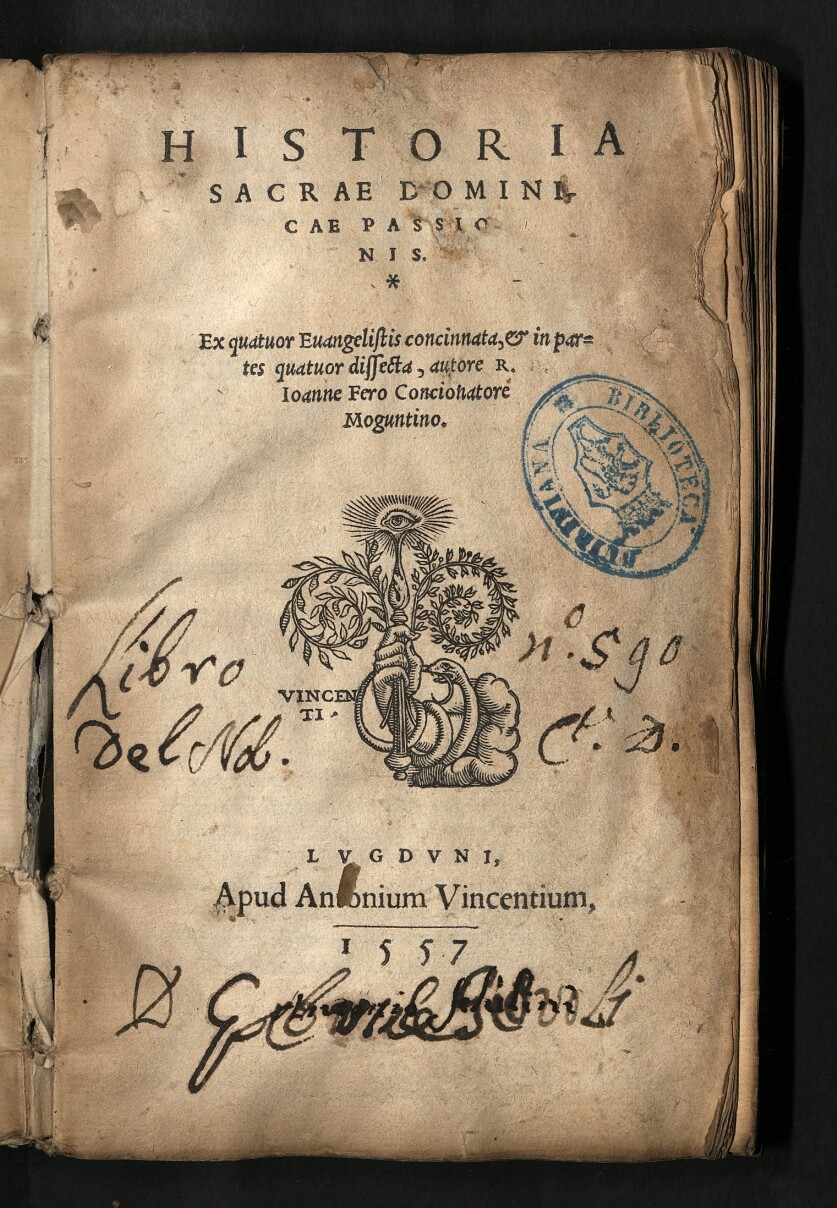 HISTORIA
SACRAE DOMINI-
CAE PASSIO
NIS.
*
Ex quatuor Euangelistis concinnata, & in par=
tes quatuor dissecta, autore R.
Ioanne Fero Concionatore
Moguntino.
BIBLIOTECA
Libro
nº. 590
VINCEN
TI.
Del Nob.
Ct. D.
LVGDVNI,
Apud Antonium Vincentium,
1557
D